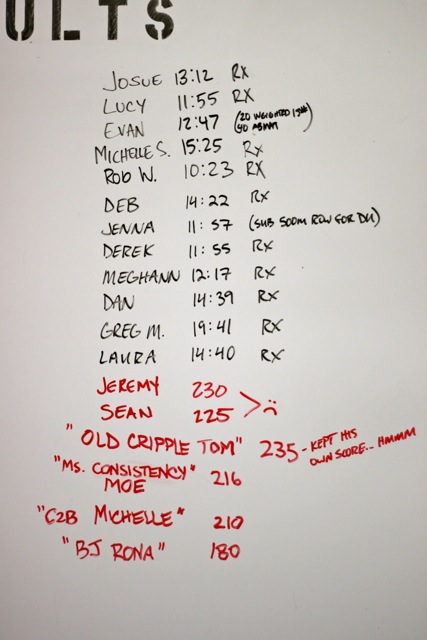 ULTS
JOSUE 13:12 RX
LUCY 11:55 RX
EVAN 12:47 (20 WEIGHTED 15#
40 ABMAT)
MICHELLE S. 15:25 RX
ROB W. 10:23 RX
DEB 14:22 RX
JENNA 11:57 (SUB 500M ROW FOR DU)
DEREK 11:55 RX
MEGHANN 12:17 RX
DAN 14:39 RX
GREG M. 19:41 RX
LAURA 14:40 RX
JEREMY 230
SEAN 225
"OLD CRIPPLE TOM" 235 - KEPT HIS
OWN SCORE... HMMMM
"MS. CONSISTENCY"
MOE 216
"C2B MICHELLE" 210
"BJ RONA" 180